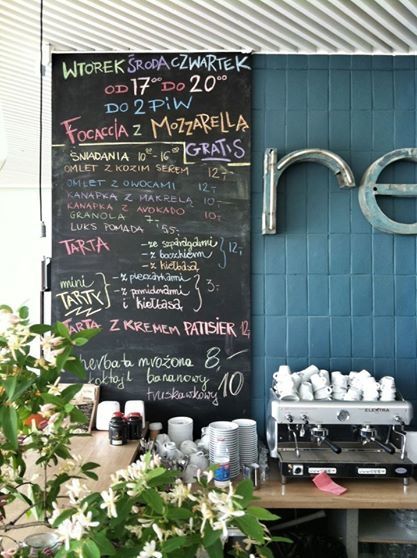 WTOREK ŚRODA CZWARTEK
OD 17⁰⁰ DO 20⁰⁰
DO 2 PIW
FOCACCIA Z MOZZARELLĄ
GRATIS
ŚNIADANIA 10⁰⁰-16⁰⁰
OMLET Z KOZIM SEREM 12,-
OMLET Z OWOCAMI 12,-
KANAPKA Z MAKRELĄ 10,-
KANAPKA Z AVOKADO 10,-
GRANOLA 7-
LUKS POMADA
TARTA
-ze szparagami
-z boczkiem
-z kiełbasą
12,-
mini TARTY
-z pieczarkami
-z pomidorami
i kiełbasą
3,-
TARTA Z KREMEM PATISIER 12,-
herbata mrożona 8,-
koktajl bananowy
truskawkowy 10
re
ELEKTRA